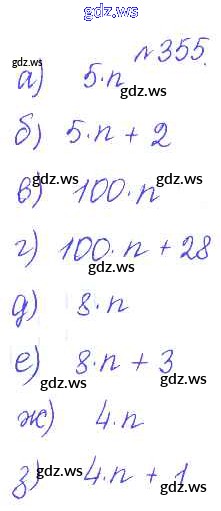 gdz.ws
№355.
gdz.ws
а) 5·n
gdz.ws
б) 5·n + 2
gdz.ws gdz.ws
в) 100·n
г) 100·n + 28
gdz.ws
д) 8·n
gdz.ws
е) 8·n + 3
gdz.ws gdz.ws
ж) 4·n
gdz.ws
з) 4·n + 1
gdz.ws